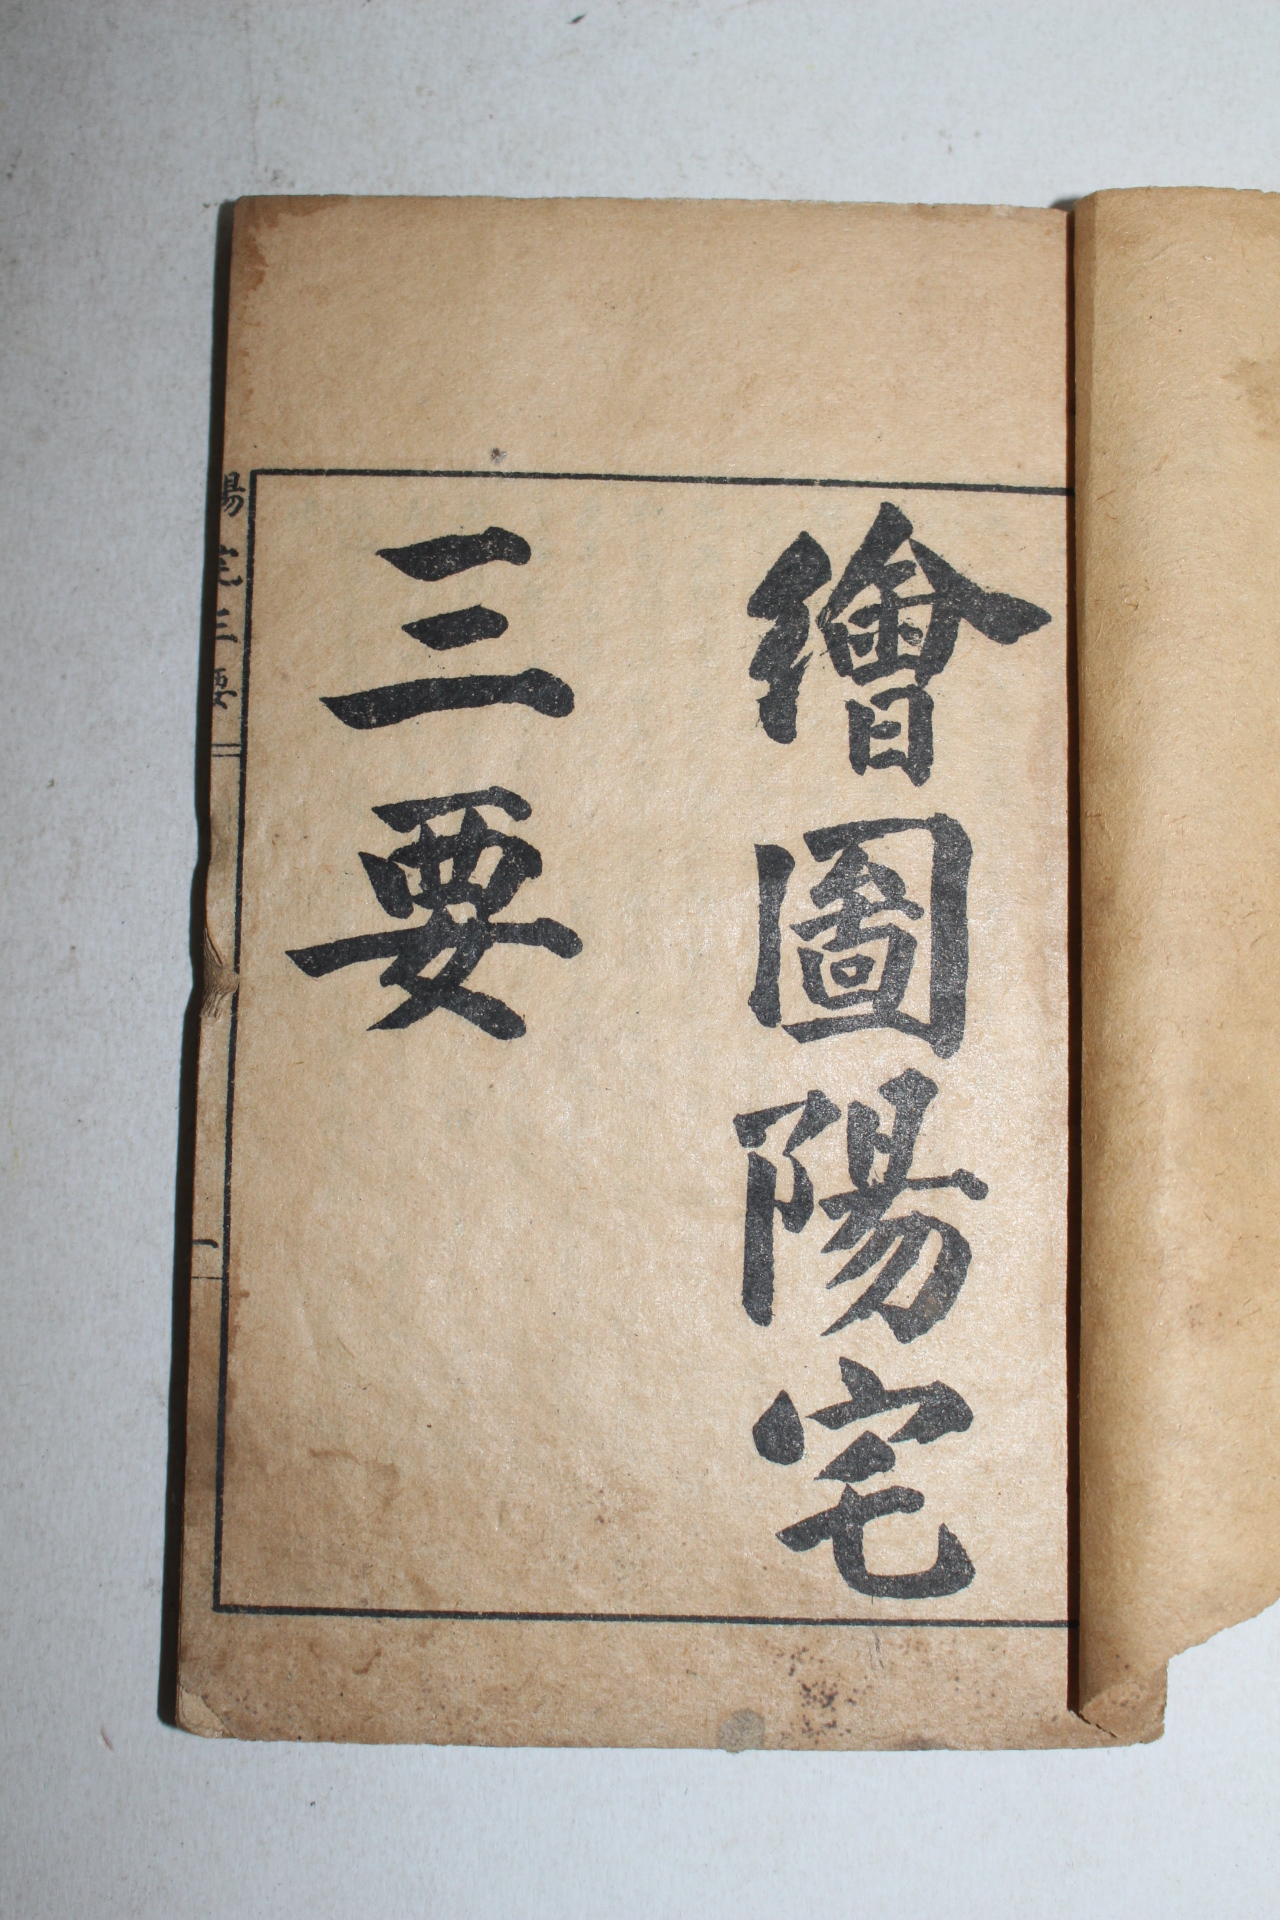 繪圖陽宅
三要
陽宅三要
一